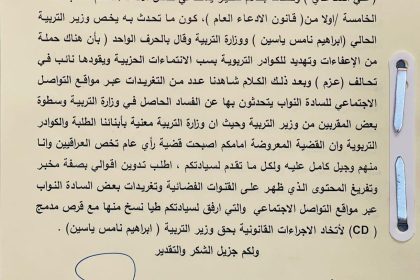 الخامسة /اولا من( قانون الادعاء العام )، كون ما تحدث به يخص وزير التربية
الحالي (ابراهيم نامس ياسين ) ووزارة التربية وقال بالحرف الواحد ( بأن هناك حملة
من الإعفاءات وتهديد للكوادر التربوية بسبب الانتماءات الحزبية ويقودها نائب في
تحالف (عزم ) وبعد ذلك الكلام شاهدنا عدد من التغريدات عبر مواقع التواصل
الاجتماعي للسادة النواب يتحدثون بها عن الفساد الحاصل في وزارة التربية وسطوة
بعض المقربين من وزير التربية وحيث ان وزارة التربية معنية بأبنائنا الطلبة والكوادر
التربوية وان القضية المعروضة امامكم اصبحت قضية رأي عام تخص العراقيين وانا
منهم وجيل كامل عليه ولكل ما تقدم لسيادتكم ، اطلب تدوين اقوالي بصفة مخبر
وتفريغ المحتوى الذي ظهر على القنوات الفضائية وتغريدات بعض السادة النواب
عبر مواقع التواصل الاجتماعي والتي ارفق لسيادتكم طيا نسخ منها مع قرص مدمج
( CD ) لأتخاذ الاجراءات القانونية بحق وزير التربية ( ابراهيم نامس ياسين) .
ولكم جزيل الشكر والتقدير